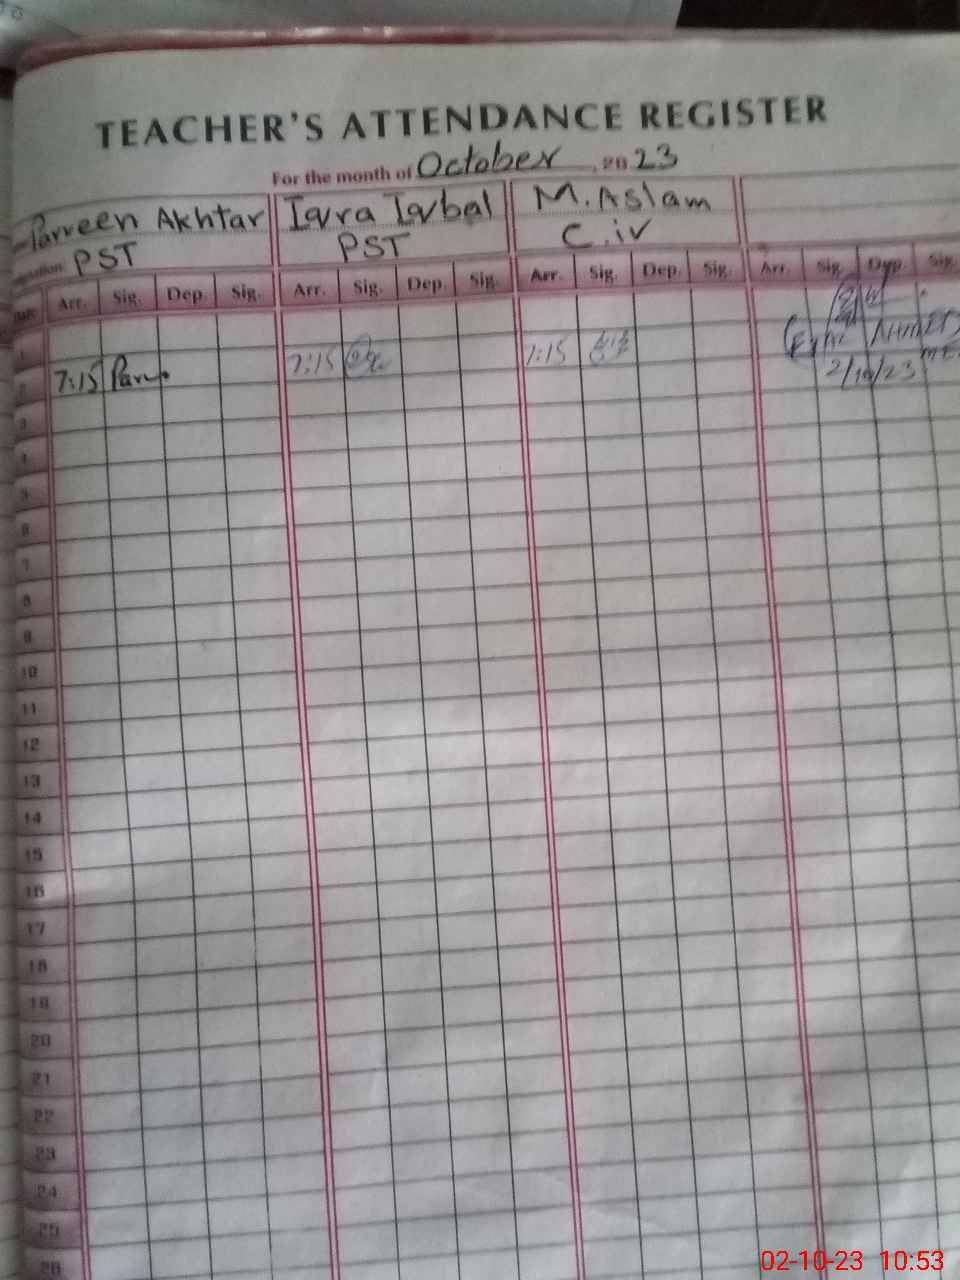 TEACHER'S ATTENDANCE REGISTER
For the month of October, 2023
Parveen Akhtar Iqra Iqbal M. Aslam
PST PST C.iv
Arr. Sig. Dep. Sig. Arr. Sig. Dep. Sig. Arr. Sig. Dep. Sig. Arr. Sig. Dep. Sig.
1
2 7:15 Parv. 7:15 7:15
2/10/23
3
4
5
6
7
8
9
10
11
12
13
14
15
16
17
18
19
20
21
22
23
24
25
26
02-10-23 10:53